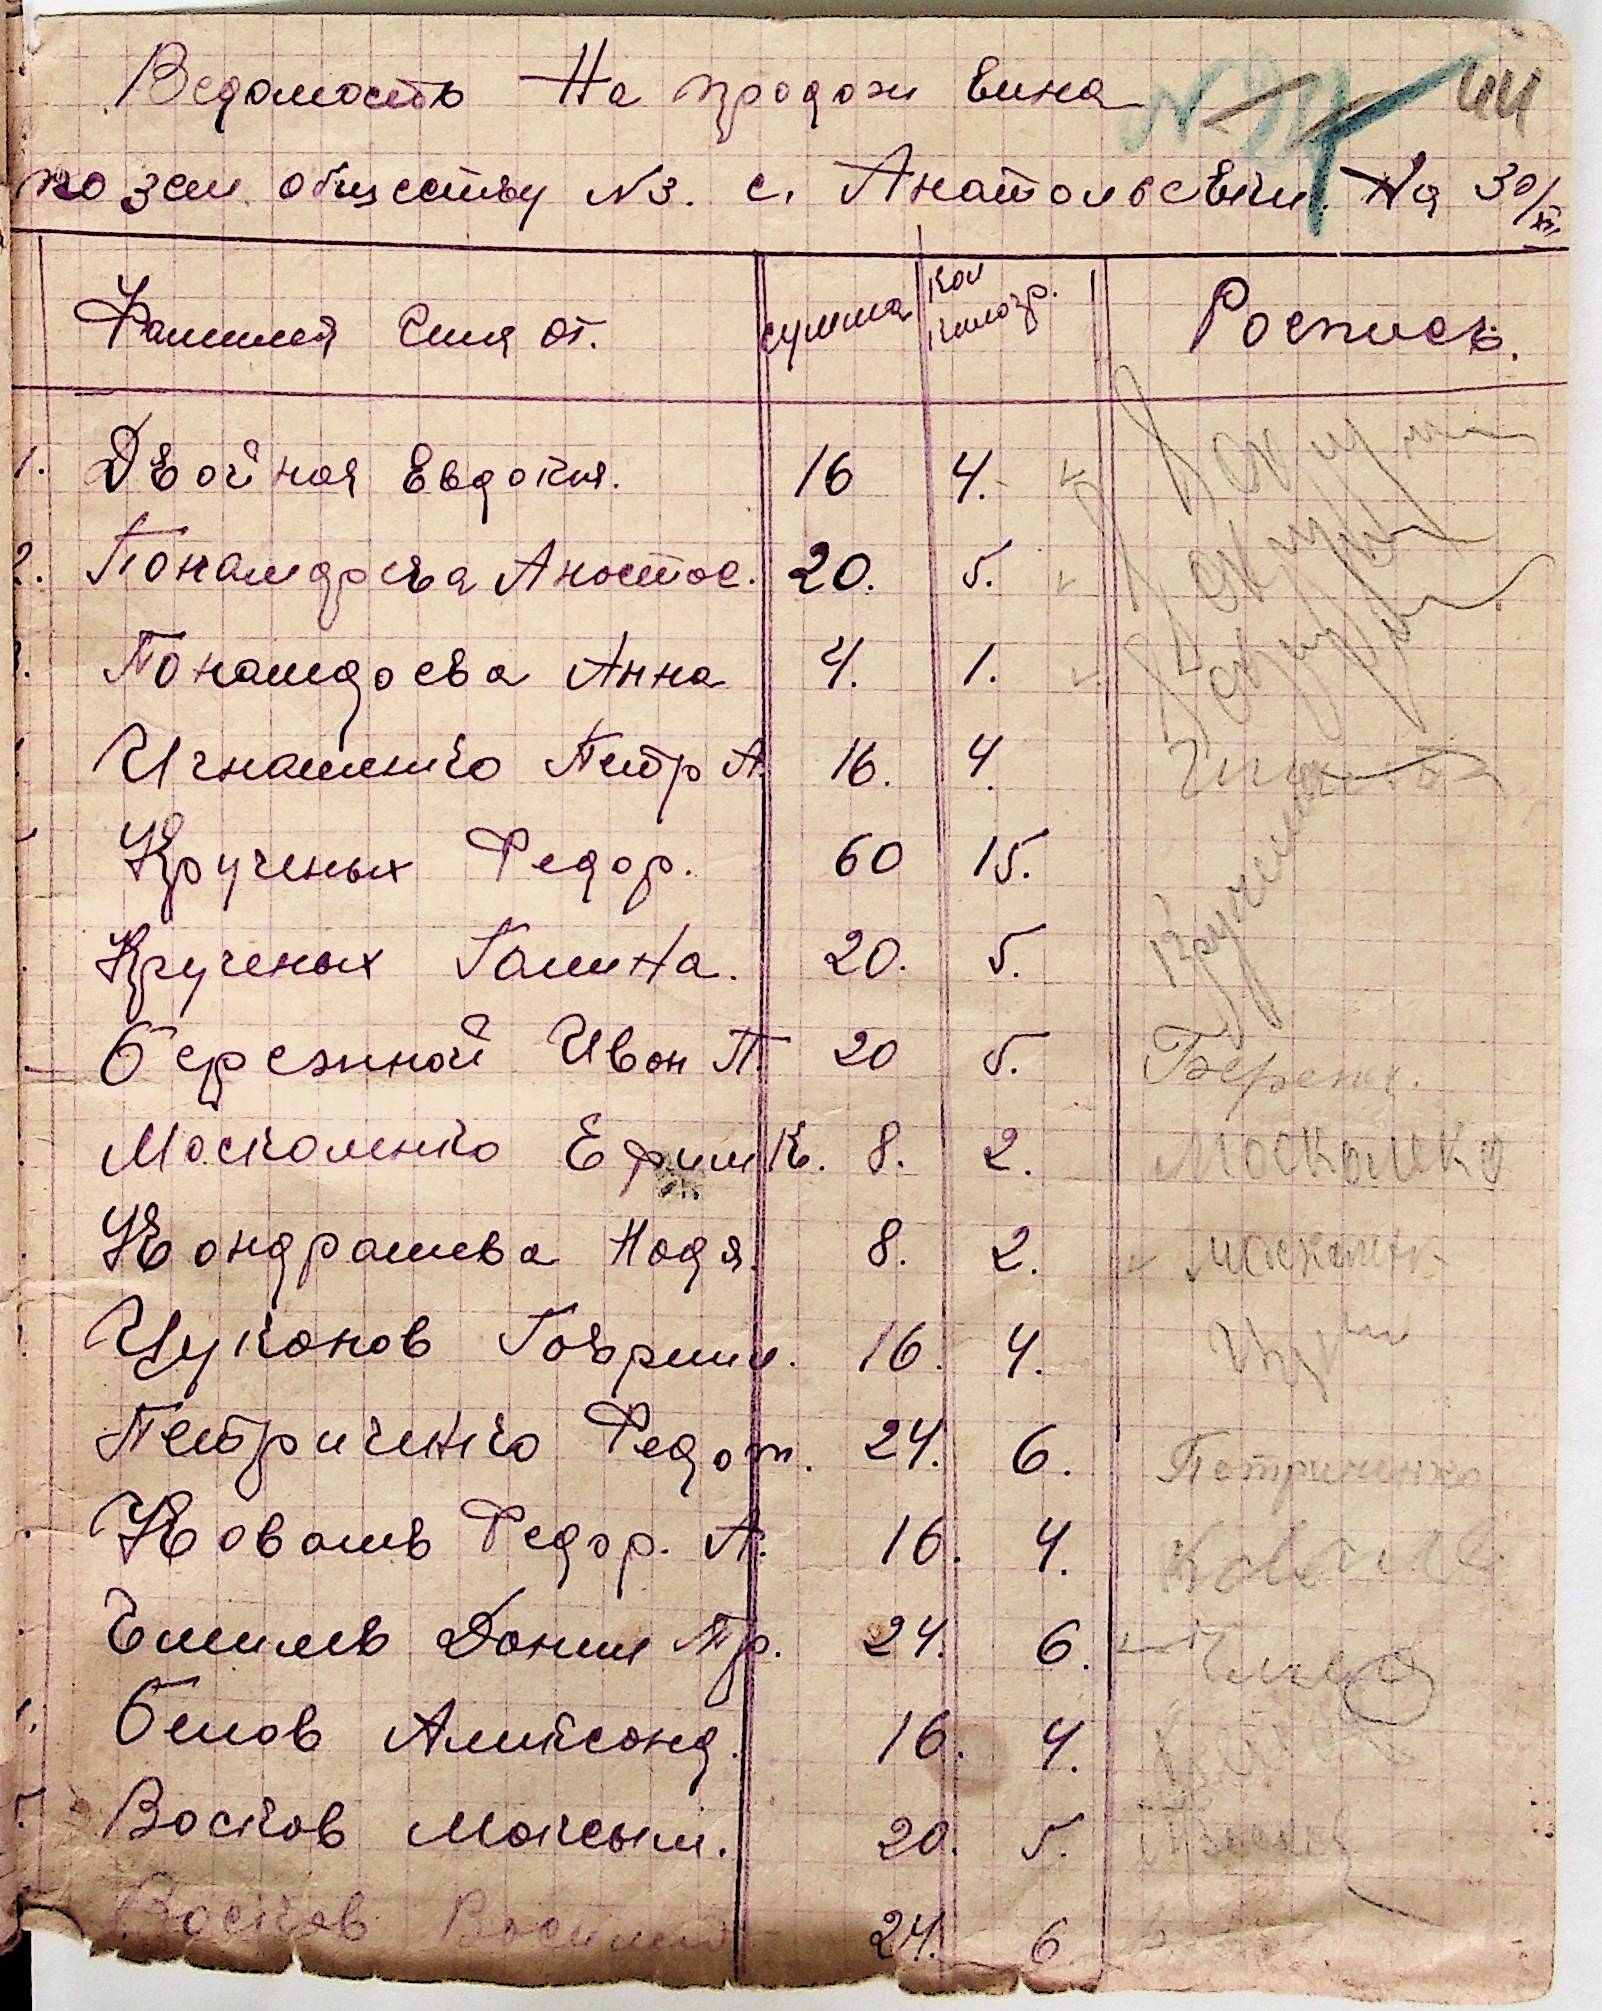 Ведомость На продажи вина
44
по зем. обществу N3. с. Анатольевки. На 30/XII
Фамилия Имя от. сумма кол килогр. Роспись.
1. Двойная Евдокия. 16 4.
2. Понамарева Анастас. 20. 5.
Понамарева Анна 4. 1.
Игнатенко Петр А. 16. 4.
Крученых Федор. 60 15. Крученых
Крученых Галина. 20. 5.
Бережной Иван П. 20 5. Бережн.
Москаленко Ефим К. 8. 2. Москаленко
Кондрашева Надя. 8. 2. Москален
Цуканов Гаврил. 16. 4. Цук
Петриченко Федот. 24. 6. Петриченко
Ковалев Федор. А. 16. 4. Ковалев
Чмилев Данил Пр. 24. 6.
Белов Александ. 16. 4.
Васков Максим. 20. 5.
Васков Василий 24. 6